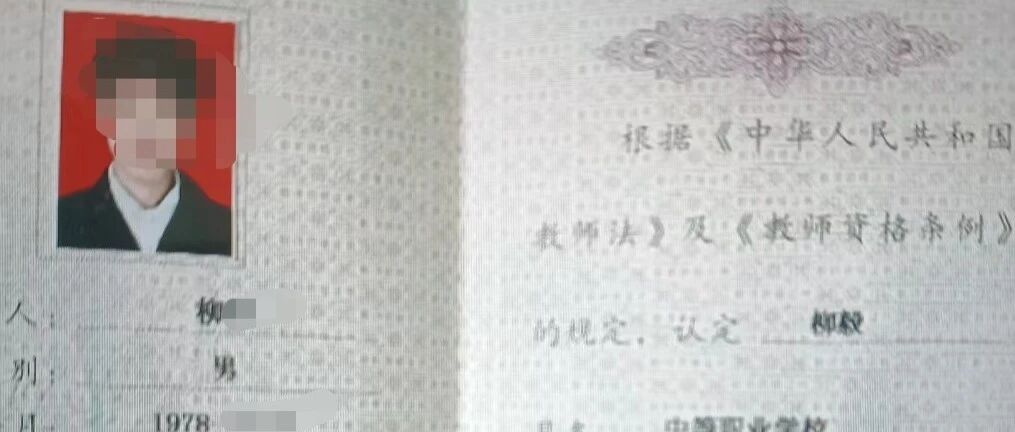 人: 柳
别: 男
月 1978
根据《中华人民共和国
教师法》及《教师资格条例》
的规定, 认定 柳毅
具备 中等职业学校